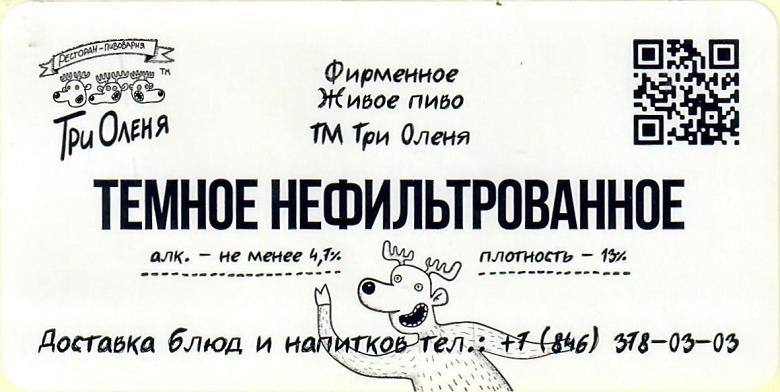 Ресторан-пивоварня
TM
Три Оленя
Фирменное
Живое пиво
ТМ Три Оленя
ТЕМНОЕ НЕФИЛЬТРОВАННОЕ
алк. – не менее 4,7%
плотность – 13%
Доставка блюд и напитков тел.: +7 (846) 378-03-03